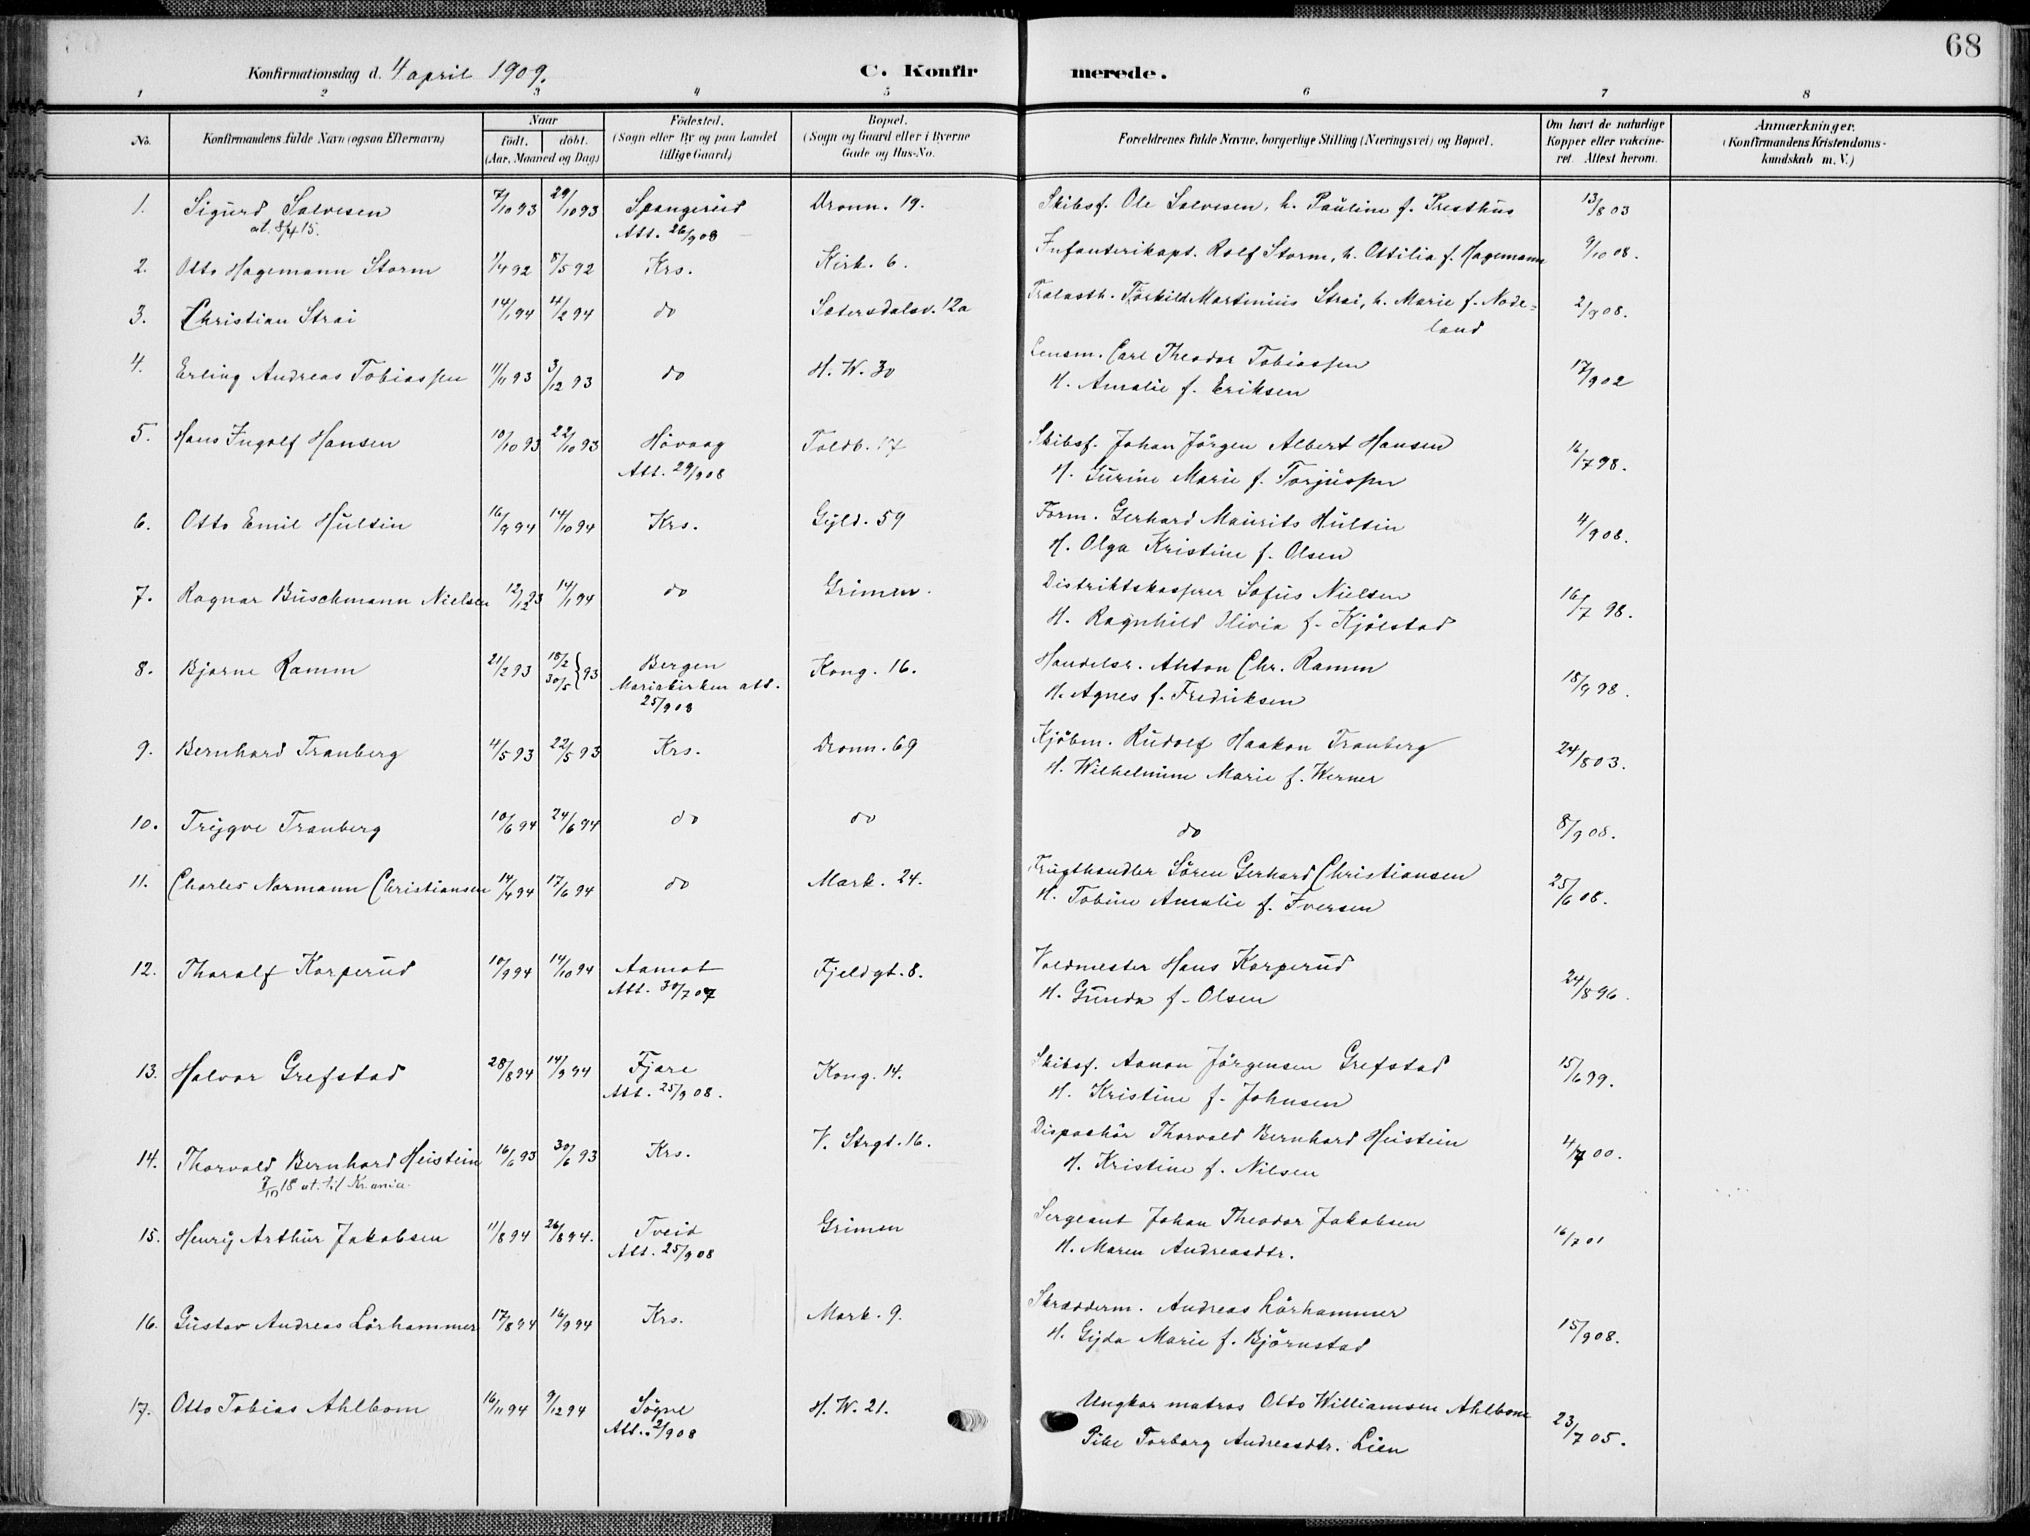 68
Konfirmationsdag d. 4 april 1909. C. Konfirmerede.
1 2 3 4 5 6 7 8
No. Konfirmandens fulde Navn (ogsaa Efternavn) Naar født. døbt. (Aar, Maaned og Dag) Fødested. (Sogn eller By og paa Landet tillige Gaard) Bopæl. (Sogn og Gaard eller i Byerne Gade og Hus-No. Forældrenes fulde Navne, borgerlige Stilling (Næringsvei) og Bopæl. Om havt de naturlige Kopper eller vakcineret. Attest herom. Anmærkninger. (Konfirmandens Kristendomskundskab m. V.)
1. Sigurd Salvesen 7/10 93 29/10 93 Spangereid Dronn. 19. Skibsf. Ole Salvesen, h. Pauline f. Presthus 13/8 03
at. 8/4 15. Att. 26/9 08
2. Otto Hagemann Storm 1/4 92 8/5 92 Krs. Kirk. 6. Infanterikapt. Rolf Storm, h. Ottilia f. Hagemann 9/10 08.
3. Christian Strai 14/1 94 4/2 94 do Sætersdalsv. 12a Trælasth. Torkild Martinius Strai, h. Marie f. Node-
land 2/9 08.
4. Erling Andreas Tobiassen 11/11 93 3/12 93 do H. W. 30 Lensm. Carl Theodor Tobiassen
H. Amalie f. Eriksen 17/9 02
5. Hans Ingolf Hansen 10/10 93 22/10 93 Høvaag Toldb. 17 Skibsf. Johan Jørgen Albert Hansen
Att. 29/9 08 H. Gurine Marie f. Torjussen 16/7 98.
6. Otto Emil Hultin 16/9 94 14/10 94 Krs. Gyld. 59 Form. Gerhard Maurits Hultin
H. Olga Kristine f. Olsen 4/9 08.
7. Ragnar Buschmann Nielsen 12/12 93 14/1 94 do Grimen. Distriktskasserer Sofus Nielsen
H. Ragnhild Olivia f. Kjølstad 16/7 98.
8. Bjarne Ramm 21/2 93 18/2 30/5 } 93 Bergen Kong. 16. Handelsr. Anton Chr. Ramm
Mariakirken att. H. Agnes f. Fredriksen 18/9 98.
25/9 08
9. Bernhard Tranberg 4/5 93 22/5 93 Krs. Dronn. 69 Kjøbm. Rudolf Haakon Tranberg
H. Wilhelmine Marie f. Werner 24/8 03.
10. Trygve Tranberg 10/6 94 24/6 94 do do do 8/9 08.
11. Charles Normann Christiansen 14/4 94 17/6 94 do Mark. 24. Frugthandler Søren Gerhard Christiansen
H. Tobine Amalie f. Iversen 25/6 08.
12. Thoralf Korperud 10/9 94 14/10 94 Aamot Fjeldgt. 8. Voldmester Hans Korperud
Att. 30/7 07 H. Gunda f. Olsen 24/8 96.
13. Halvor Grefstad 28/8 94 14/9 94 Fjære Kong. 14. Skibsf. Aanon Jørgensen Grefstad
Att. 25/9 08. H. Kristine f. Johnsen 15/6 99.
14. Thorvald Bernhard Heistein 16/6 93 30/6 93 Krs. V. Strgt. 16. Dispachør Thorvald Bernhard Heistein
7/10 18 at. til Kr.ania. H. Kristine f. Nilsen 4/7 00.
15. Henry Arthur Jakobsen 11/8 94 26/8 94. Tveid Grimen Sergeant Johan Theodor Jakobsen
Att. 25/9 08 H. Maren Andreasdtr. 16/7 01
16. Gustav Andreas Lørhammer 17/8 94 16/9 94 Krs. Mark. 9. Skrædderm. Andreas Lørhammer
H. Gyda Marie f. Bjørnstad 15/9 08.
17. Otto Tobias Ahlbom 16/11 94 9/12 94 Søgne H. W. 21. Ungkar matros Otto Williamsen Ahlbom
Att. 2/9 08 Pike Torborg Andreasdtr. Lien 23/7 05.